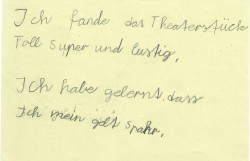 Ich fande das Theaterstück
Toll super und lustig,
Ich habe gelernt dass
Ich mein gelt spahr,